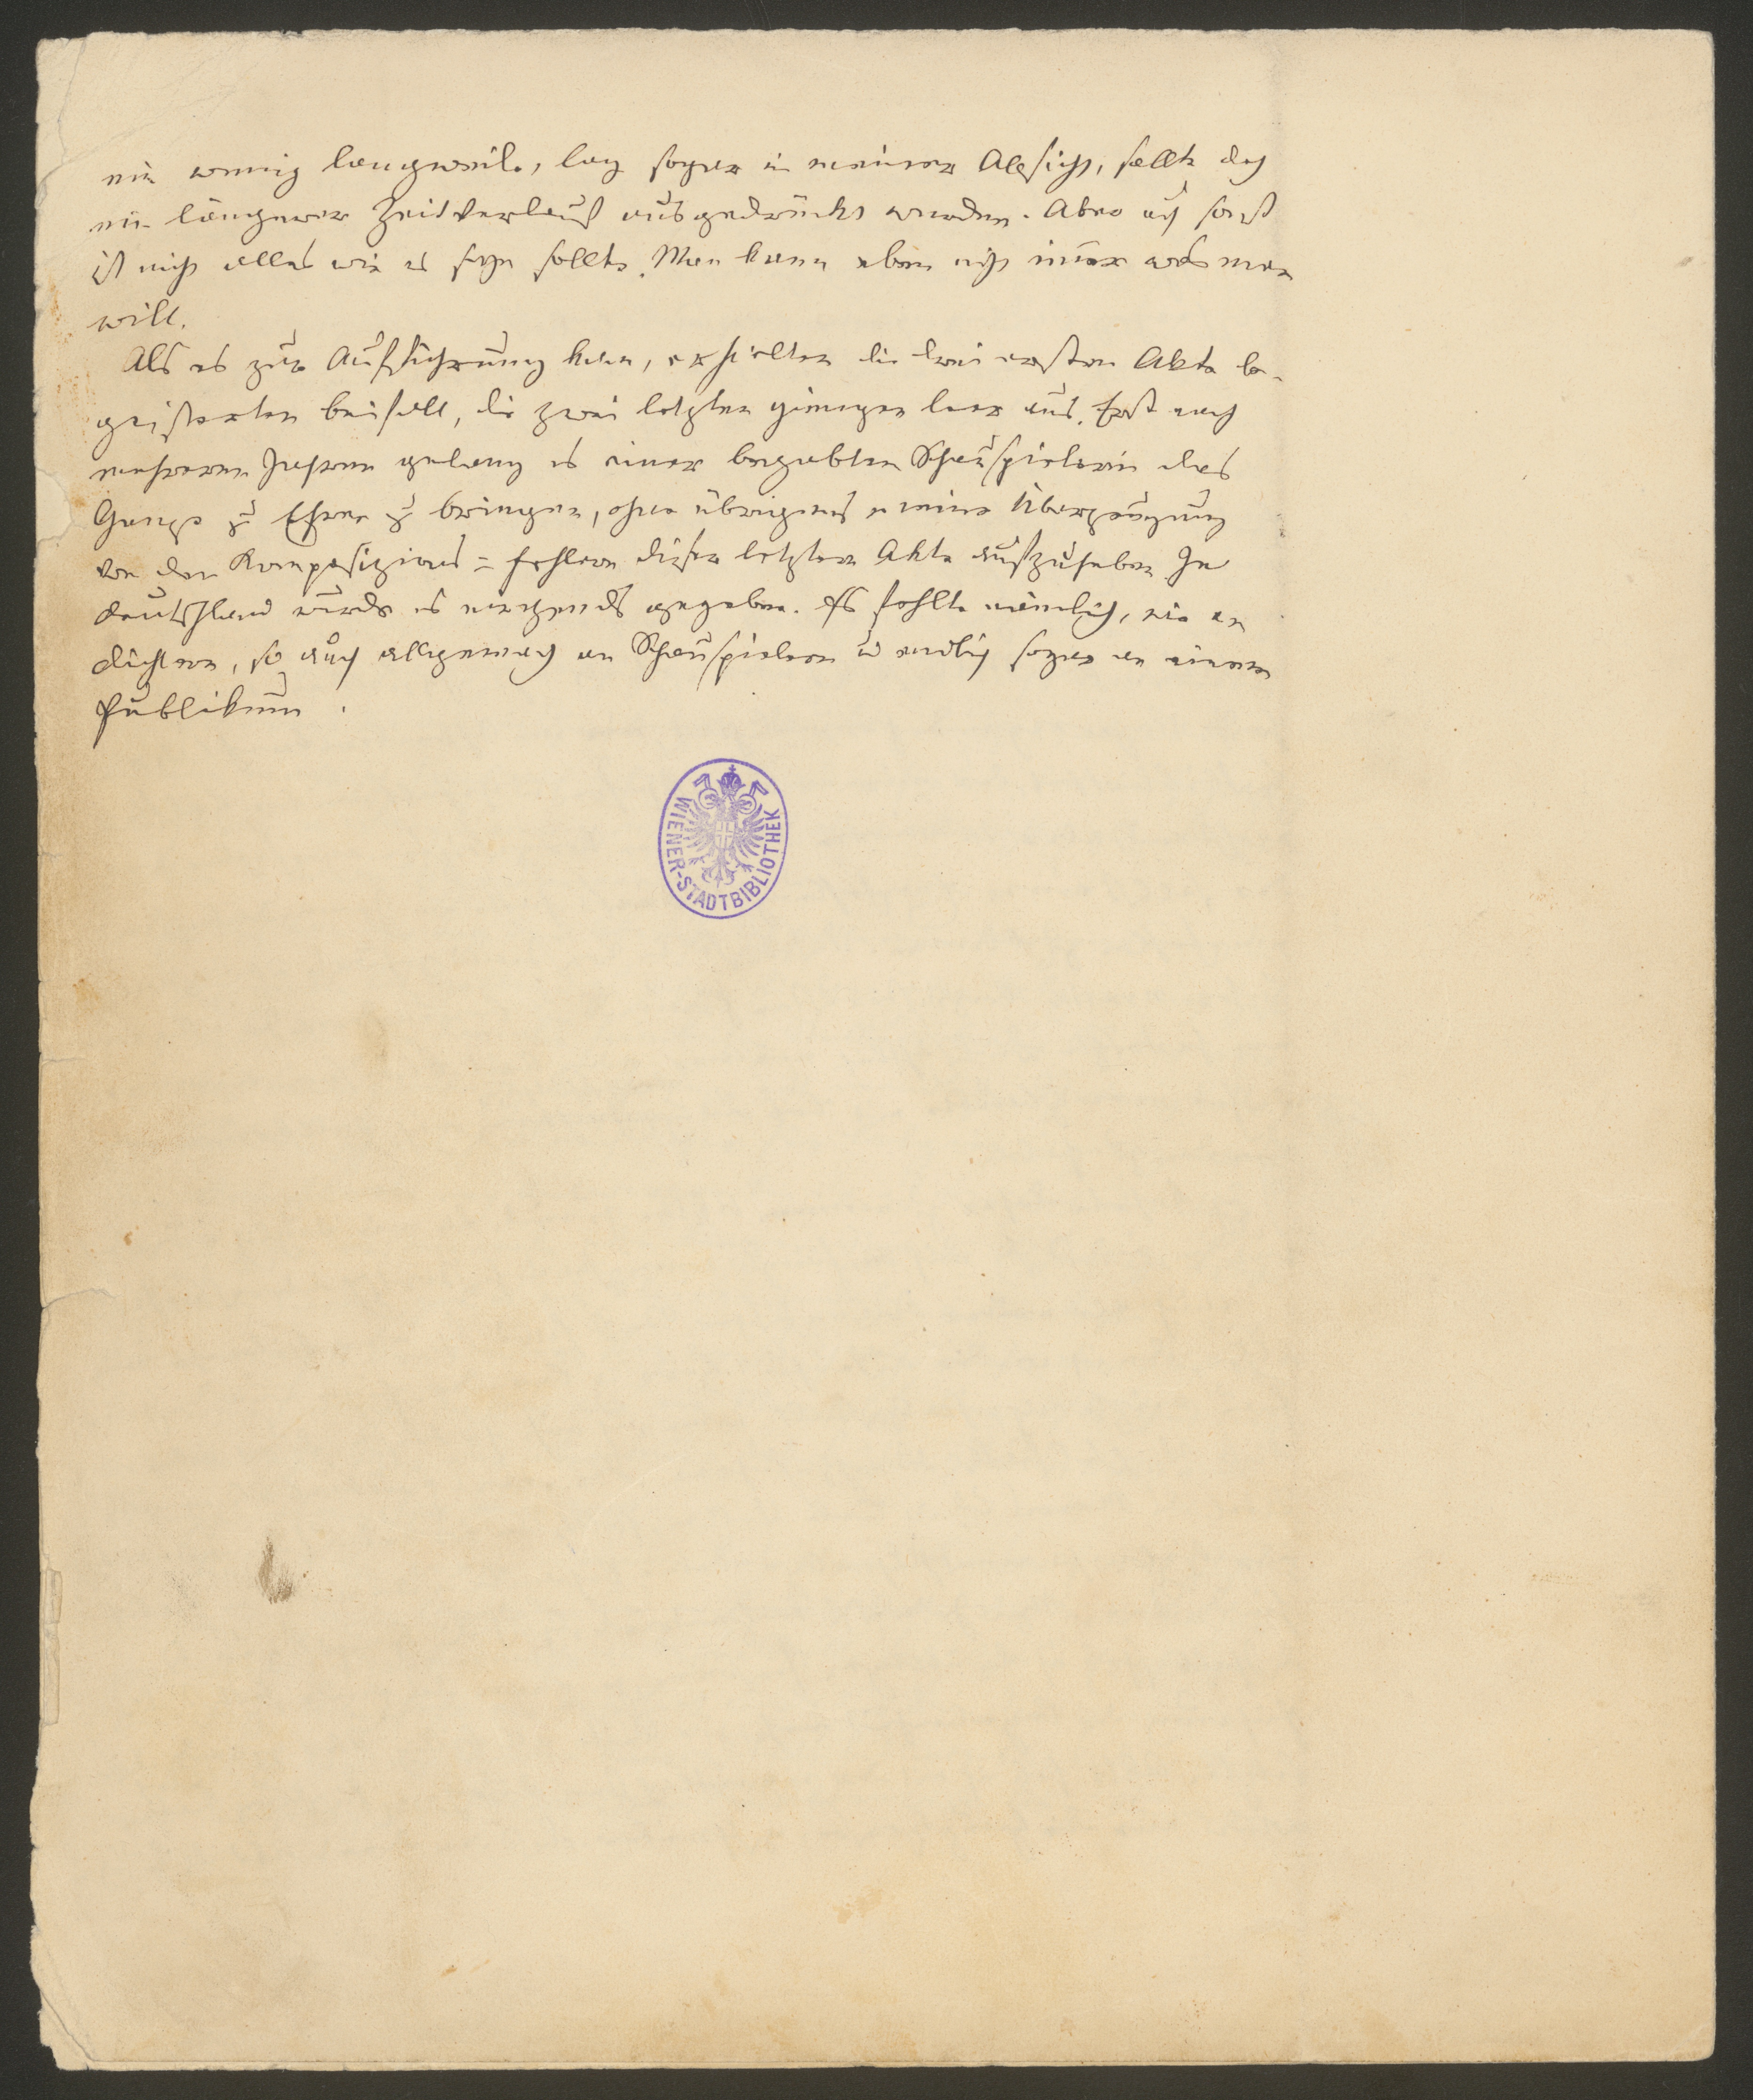 ein wenig langweile, lag sogar in meiner Absicht, sollte doch
ein längerer Zeitverlauf ausgedrückt werden. Aber auch sonst
ist nicht alles wie es seyn sollte. Man kann eben nicht im̄er was man
will.
Als es zur Aufführung kam, erhielten die drei ersten Akte be-
geisterten beifall, die zwei letzten giengen leer aus. Erst nach
mehreren Jahren gelang es einer begabten Schauspielerin das
Ganze zu Ehren zu bringen, ohne übrigens meine Überzeugung
von den Kompositions=fehlern dieser letzten Akte aufzuheben. In
deutschland wurde es nirgends gegeben. Es fehlte nämlich, wie an
dichtern, so auch allgemach an Schauspielern u endlich sogar an einem
Publikum.
WIENER-STADTBIBLIOTHEK